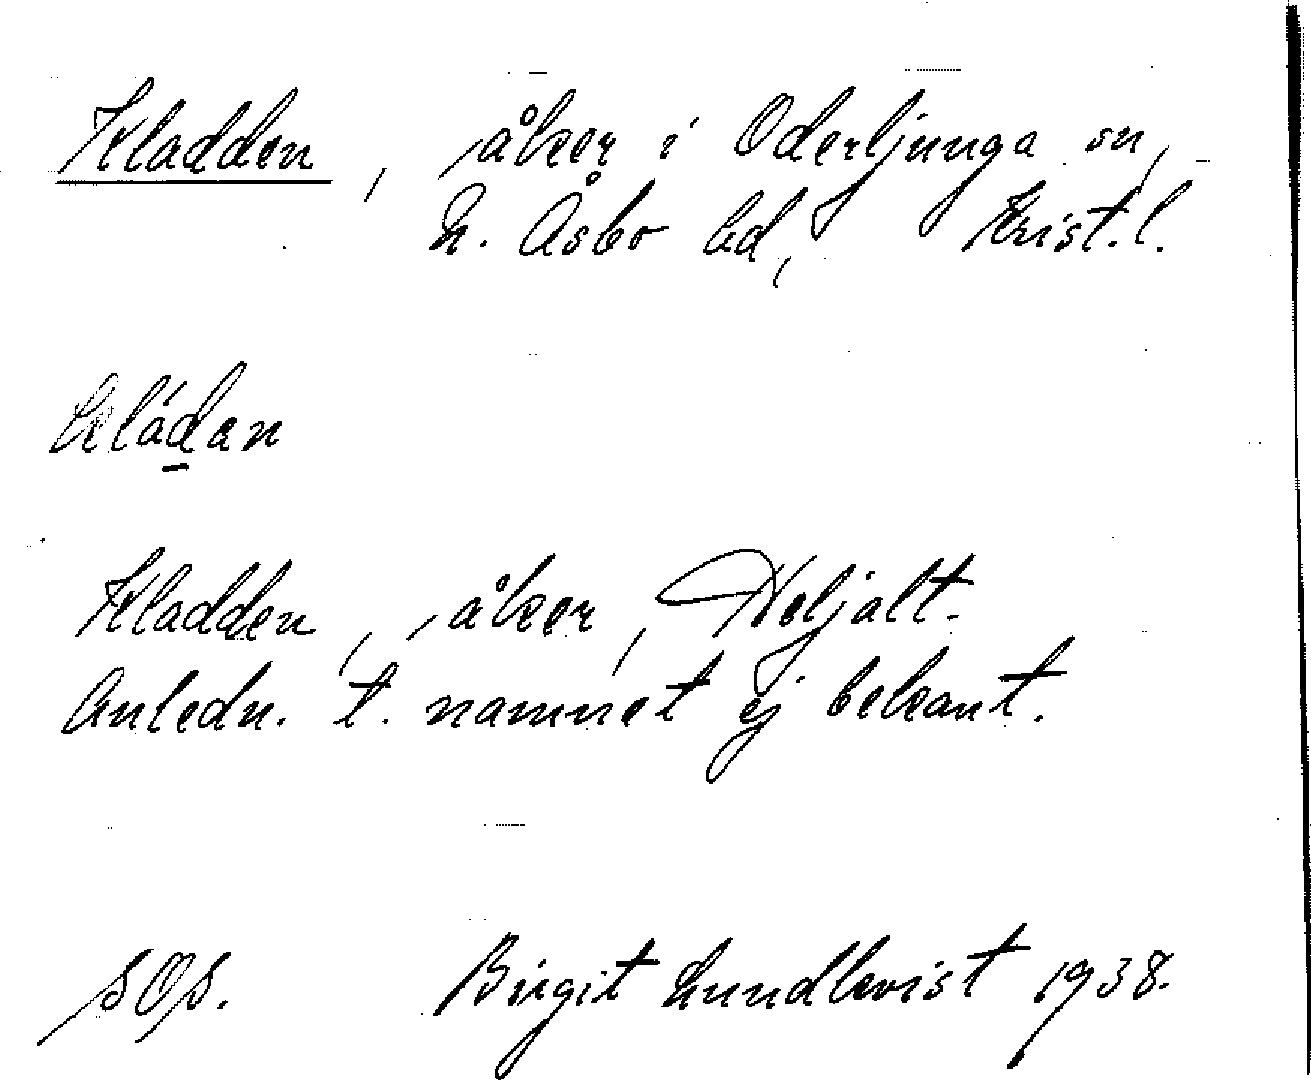 Kladden, åker i Oderljunga sn,
N. Åsbo hd, Krist. l.
kládan
Kladden, åker, Heljalt.
Anledn. t. namnet ej bekant.
SOS. Birgit Lundkvist 1938.